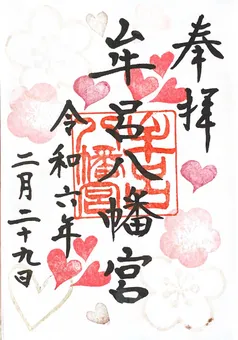 奉拝
牟呂八幡宮
令和六年
二月二十九日
牟呂八幡宮